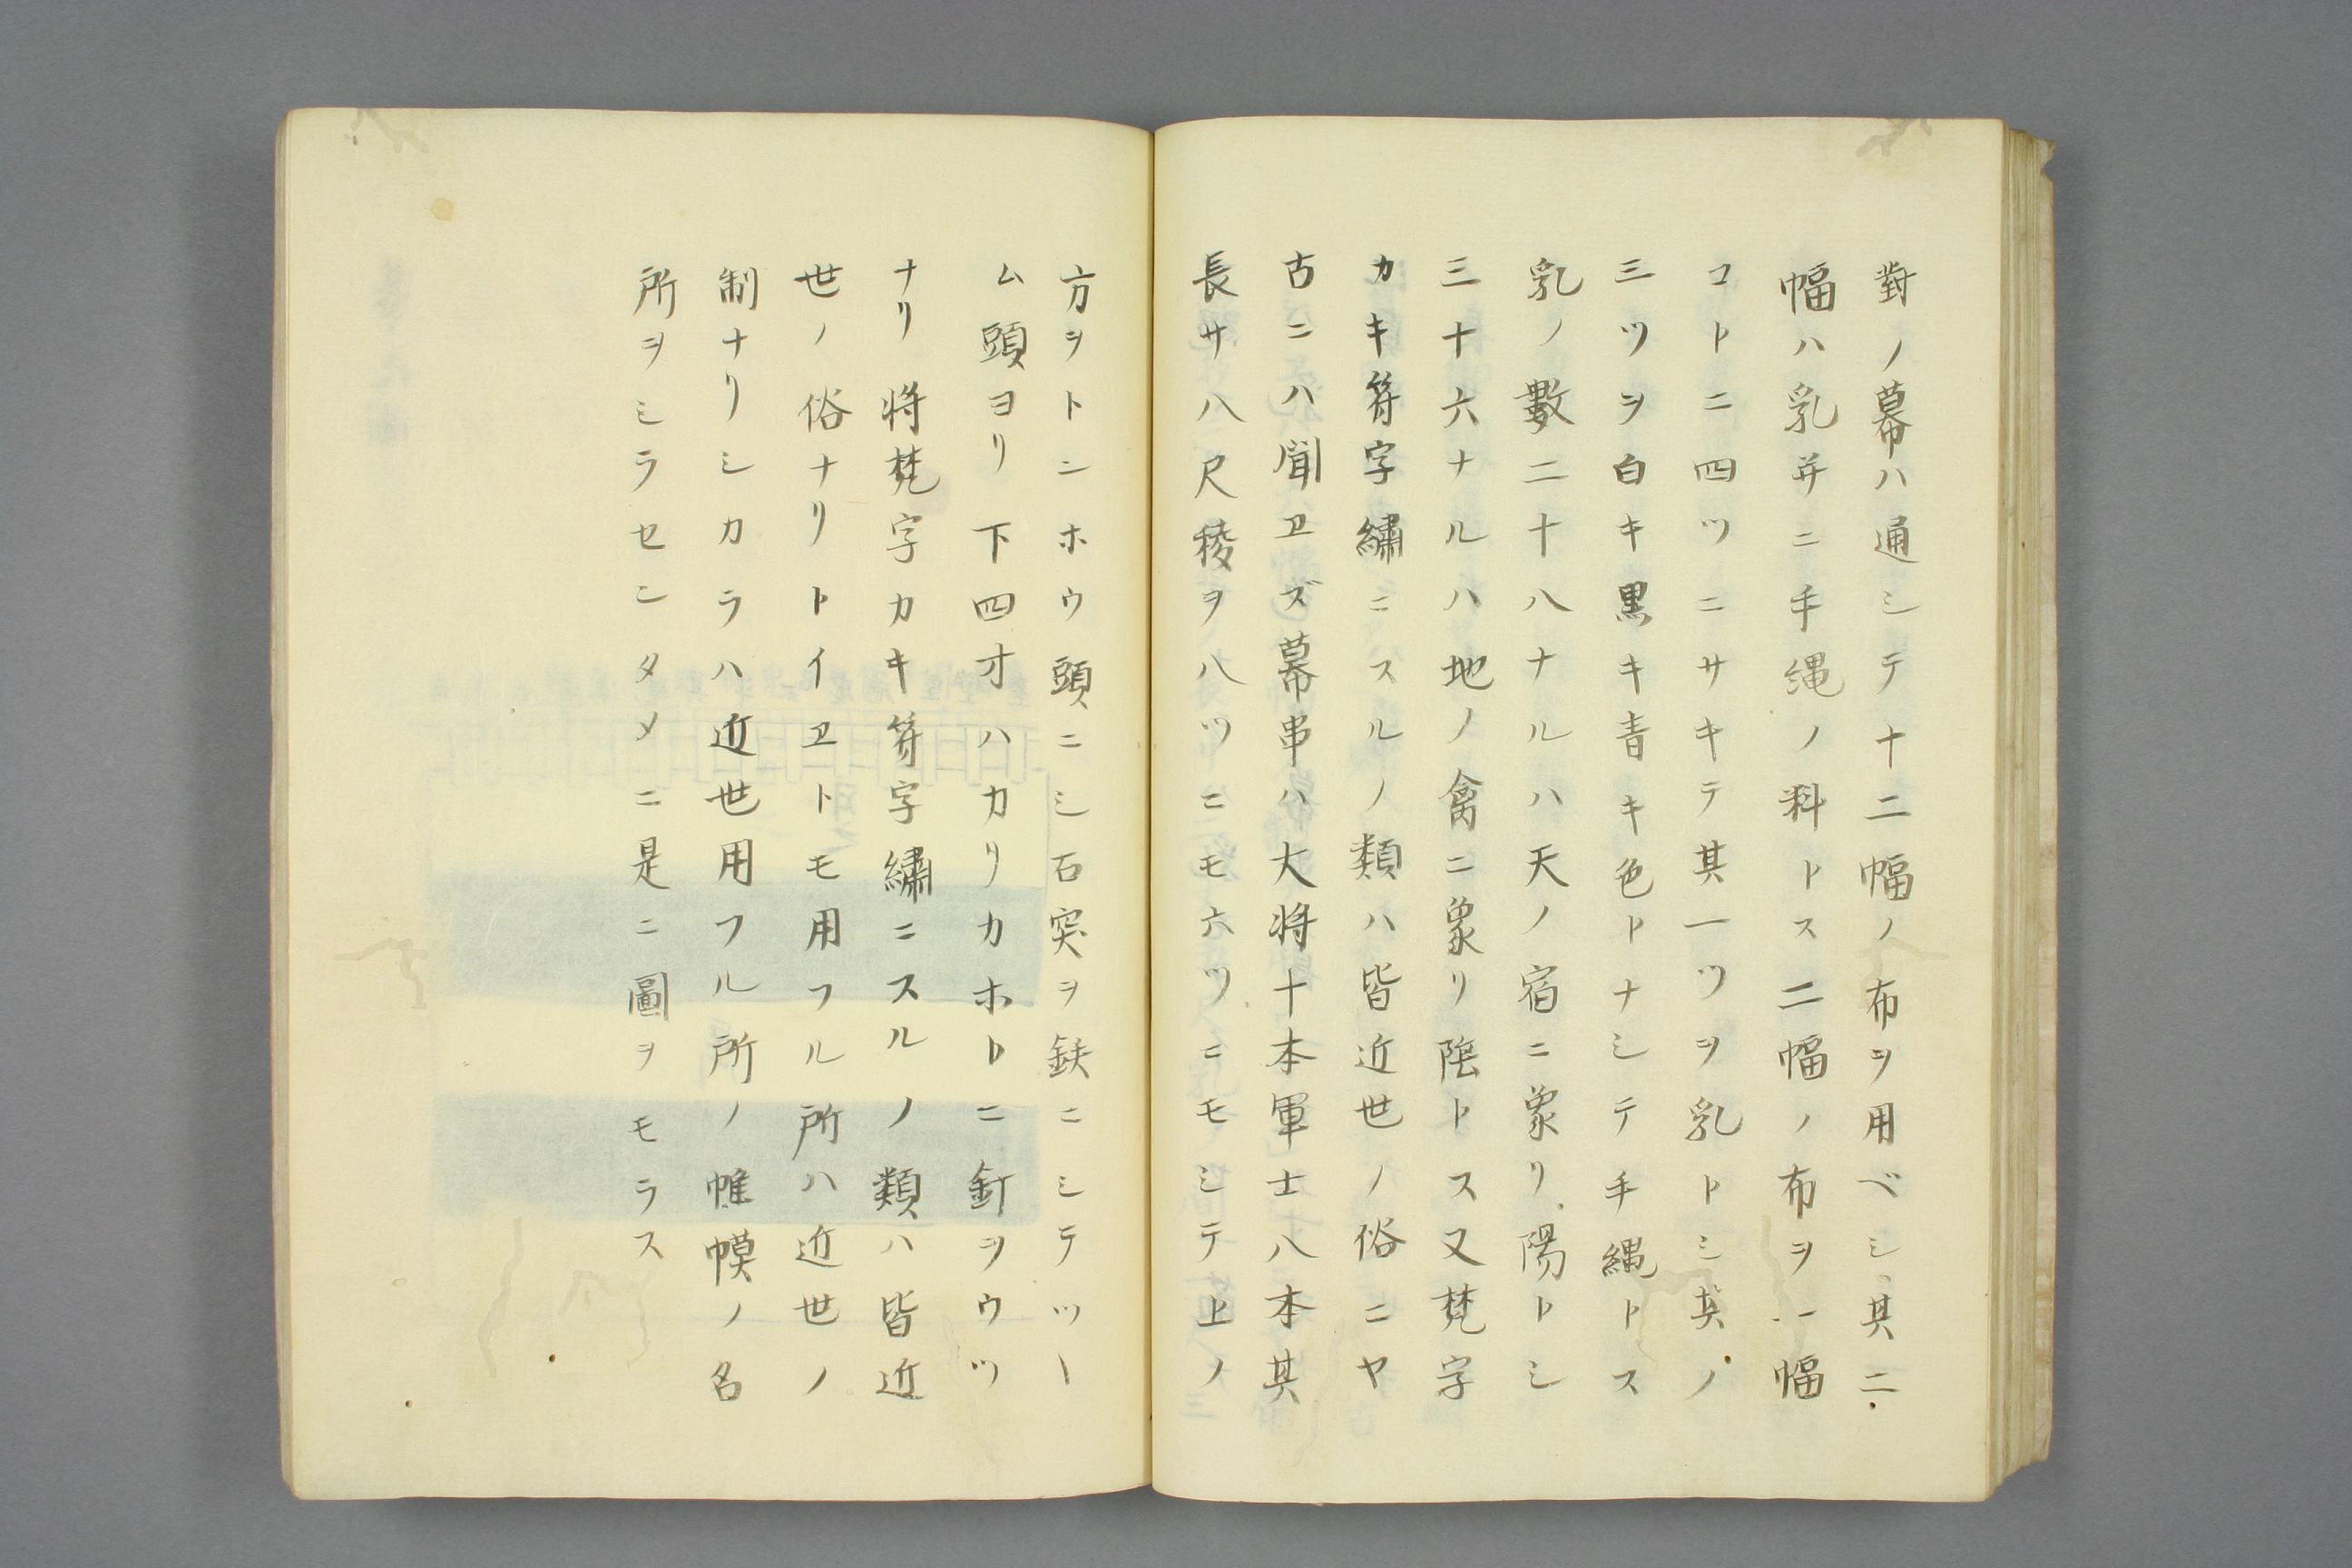 對ノ幕ハ通シテ十二幅ノ布ヲ用ベシ其二
幅ハ乳并ニ手縄ノ料トス二幅ノ布ヲ一幅
コトニ四ツニサキテ其一ツヲ乳トシ其ノ
三ツヲ白キ黒キ青キ色トナシテ手縄トス
乳ノ數二十八ナルハ天ノ宿ニ象リ陽トシ
三十六ナルハ地ノ禽ニ象リ陰トス又梵字
カキ符字繡ニスルノ類ハ皆近世ノ俗ニヤ
古ニハ聞ヱズ幕串ハ大将十本軍士八本其
長サ八尺稜ヲ八ツニモ六ツニモシテ上ノ
方ヲトンホウ頭ニシ石突ヲ鉄ニシテツヽ
ム頭ヨリ下四オハカリカホトニ釘ヲウツ
ナリ将梵字カキ符字繡ニスルノ類ハ皆近
世ノ俗ナリトイヱトモ用フル所ハ近世ノ
制ナリシカラハ近世用フル所ノ帷幙ノ名
所ヲシラセンタメニ是ニ圖ヲモラス